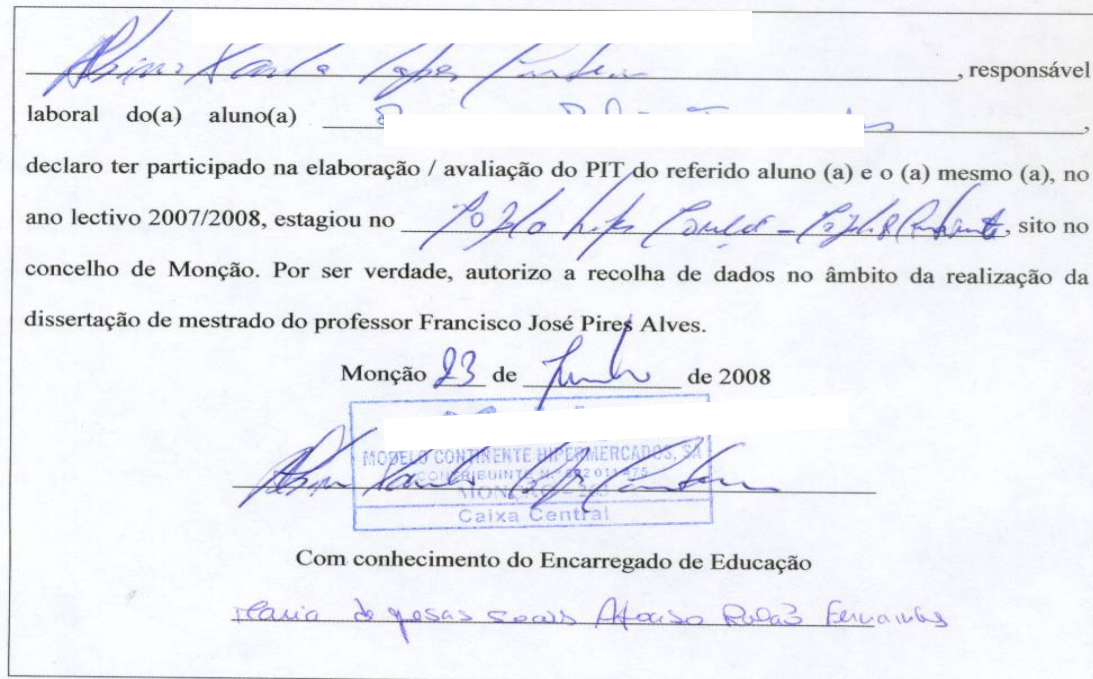 , responsável
laboral do(a) aluno(a) ,
declaro ter participado na elaboração / avaliação do PIT do referido aluno (a) e o (a) mesmo (a), no
ano lectivo 2007/2008, estagiou no , sito no
concelho de Monção. Por ser verdade, autorizo a recolha de dados no âmbito da realização da
dissertação de mestrado do professor Francisco José Pires Alves.
Monção 23 de Junho de 2008
MODELO CONTINENTE HIPERMERCADOS, SA
CONTRIBUINTE N.º
Caixa Central
Com conhecimento do Encarregado de Educação
Maria de Afonso Fernandes